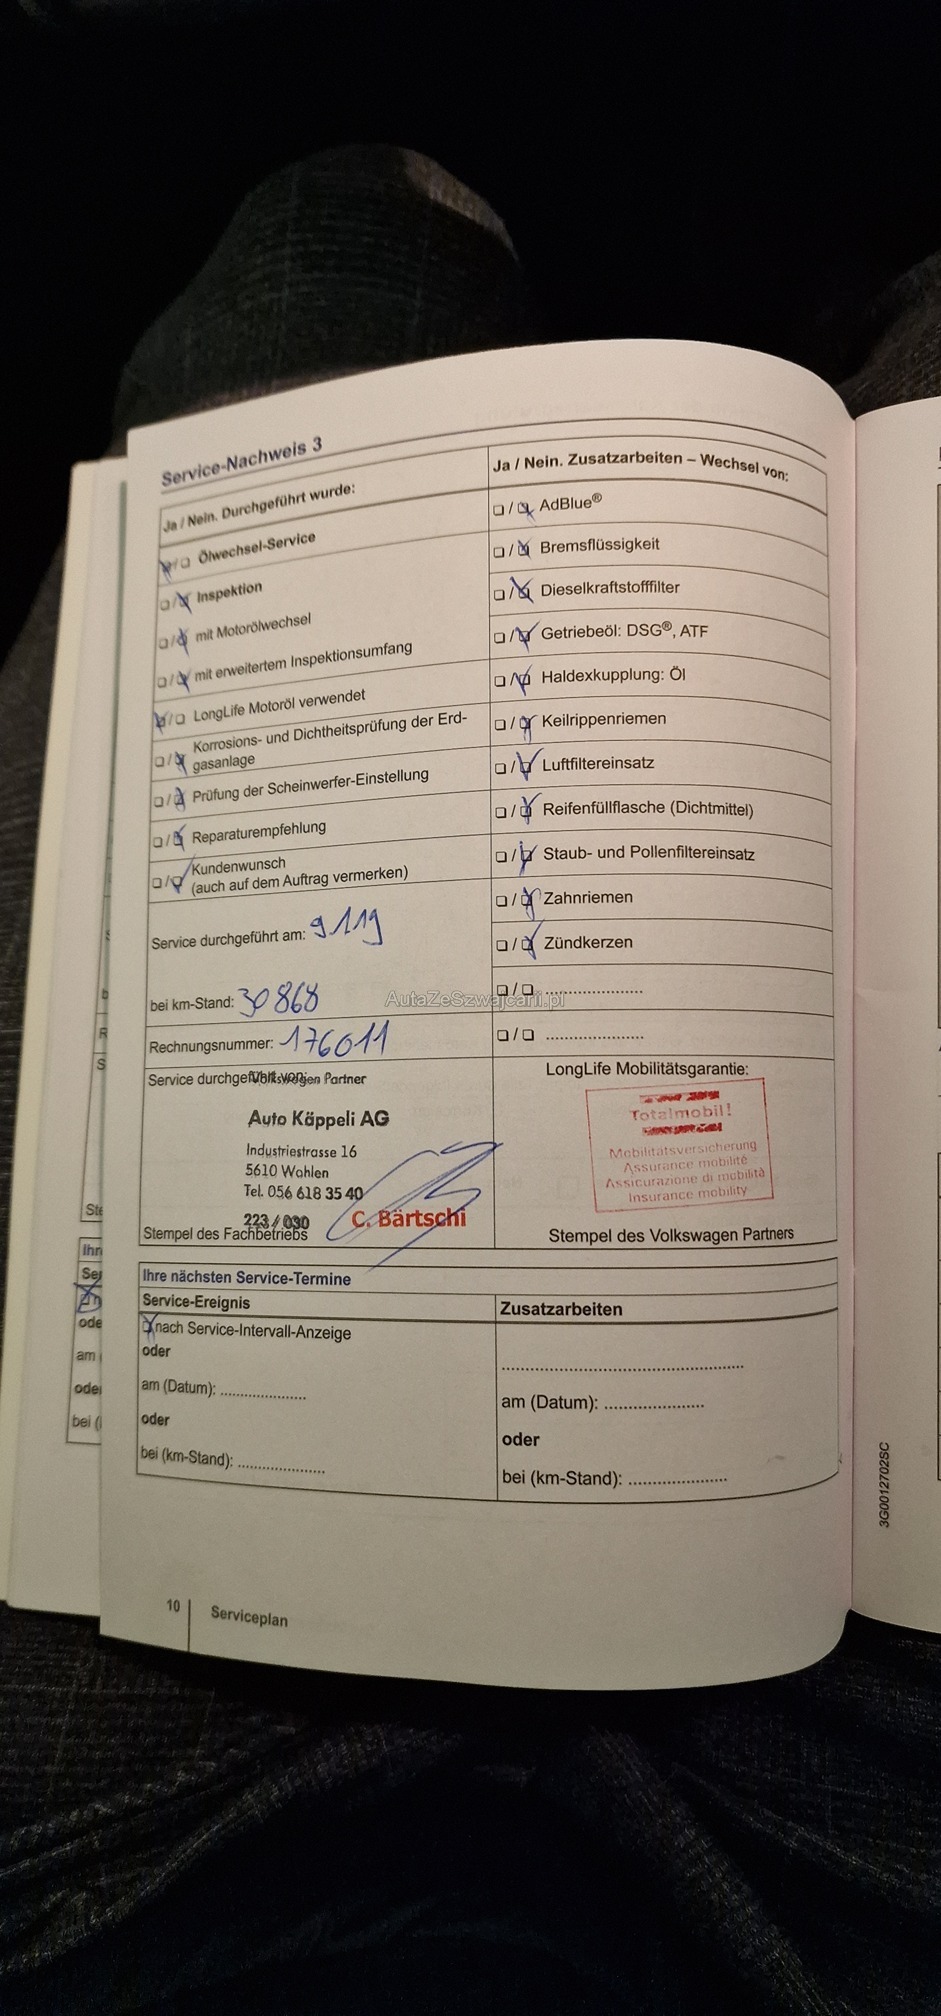 Service-Nachweis 3
Ja / Nein. Durchgeführt wurde:
☒ / ☐ Ölwechsel-Service
☐ / ☒ Inspektion
☐ / ☒ mit Motorölwechsel
☐ / ☒ mit erweitertem Inspektionsumfang
☒ / ☐ LongLife Motoröl verwendet
☐ / ☒ Korrosions- und Dichtheitsprüfung der Erd-
gasanlage
☐ / ☒ Prüfung der Scheinwerfer-Einstellung
☐ / ☒ Reparaturempfehlung
☐ / ☒ Kundenwunsch
(auch auf dem Auftrag vermerken)
Service durchgeführt am: 9 1 19
bei km-Stand: 30868
Rechnungsnummer: 176011
Service durchgeführt von:
Volkswagen Partner
Auto Käppeli AG
Industriestrasse 16
5610 Wohlen
Tel. 056 618 35 40
223 / 030
C. Bärtschi
Stempel des Fachbetriebs
Ja / Nein. Zusatzarbeiten – Wechsel von:
☐ / ☒ AdBlue®
☐ / ☒ Bremsflüssigkeit
☐ / ☒ Dieselkraftstofffilter
☐ / ☒ Getriebeöl: DSG®, ATF
☐ / ☒ Haldexkupplung: Öl
☐ / ☒ Keilrippenriemen
☐ / ☒ Luftfiltereinsatz
☐ / ☒ Reifenfüllflasche (Dichtmittel)
☐ / ☒ Staub- und Pollenfiltereinsatz
☐ / ☒ Zahnriemen
☐ / ☒ Zündkerzen
☐ / ☐ ......................
☐ / ☐ ......................
AutaZeSzwajcarii.pl
LongLife Mobilitätsgarantie:
Totalmobil!
Mobilitätsversicherung
Assurance mobilité
Assicurazione di mobilità
Insurance mobility
Stempel des Volkswagen Partners
Ihre nächsten Service-Termine
Service-Ereignis
☒ nach Service-Intervall-Anzeige
oder
am (Datum): ....................
oder
bei (km-Stand): ....................
Zusatzarbeiten
..................................................
am (Datum): ......................
oder
bei (km-Stand): ......................
10
Serviceplan
3G0012702SC